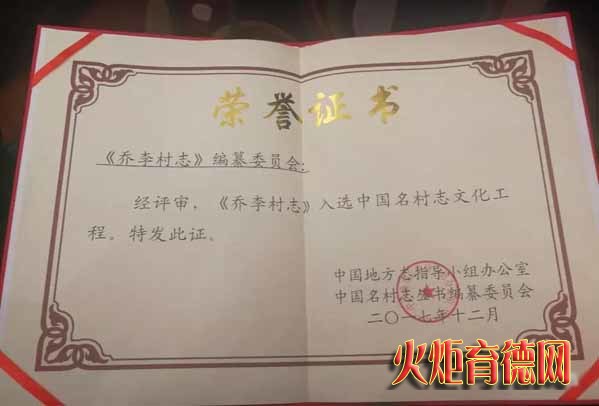 荣誉证书
《乔李村志》编纂委员会:
经评审，《乔李村志》入选中国名村志文化工
程。特发此证。
中国地方志指导小组办公室
中国名村志丛书编纂委员会
二〇一七年十二月
火炬育德网